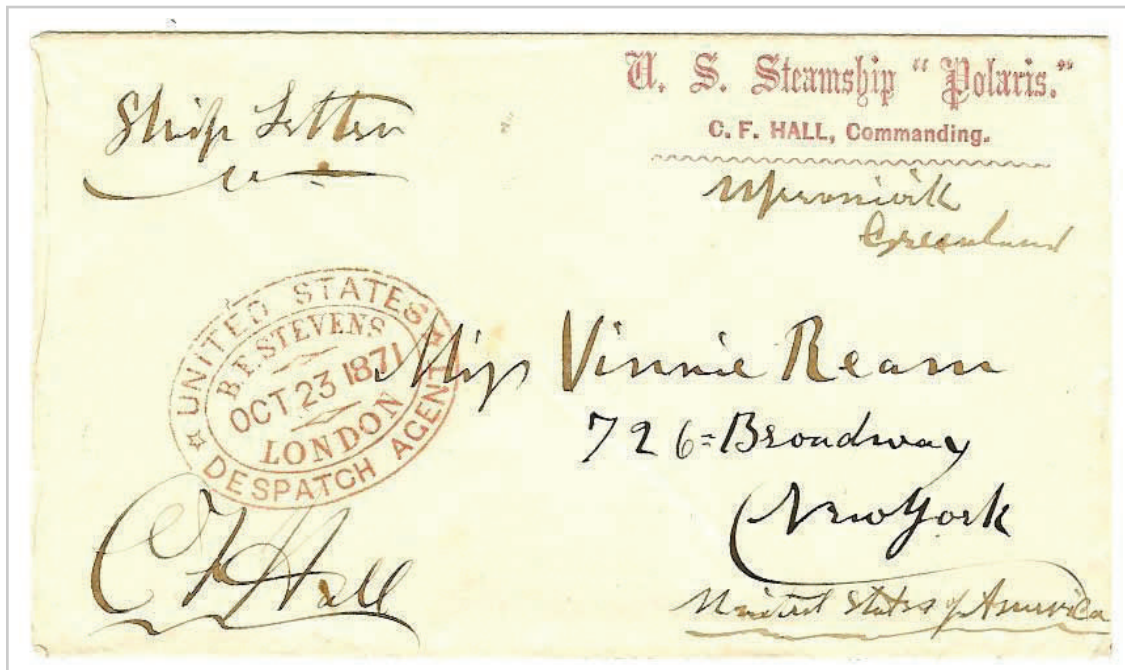 Ship Letter
U. S. Steamship "Polaris."
C. F. HALL, Commanding.
Upernivik
Greenland
UNITED STATES
DESPATCH AGENT
B.F. STEVENS
OCT 23 1871
LONDON
Miss Vinnie Ream
726 = Broadway
New York
United States of America
C F Hall